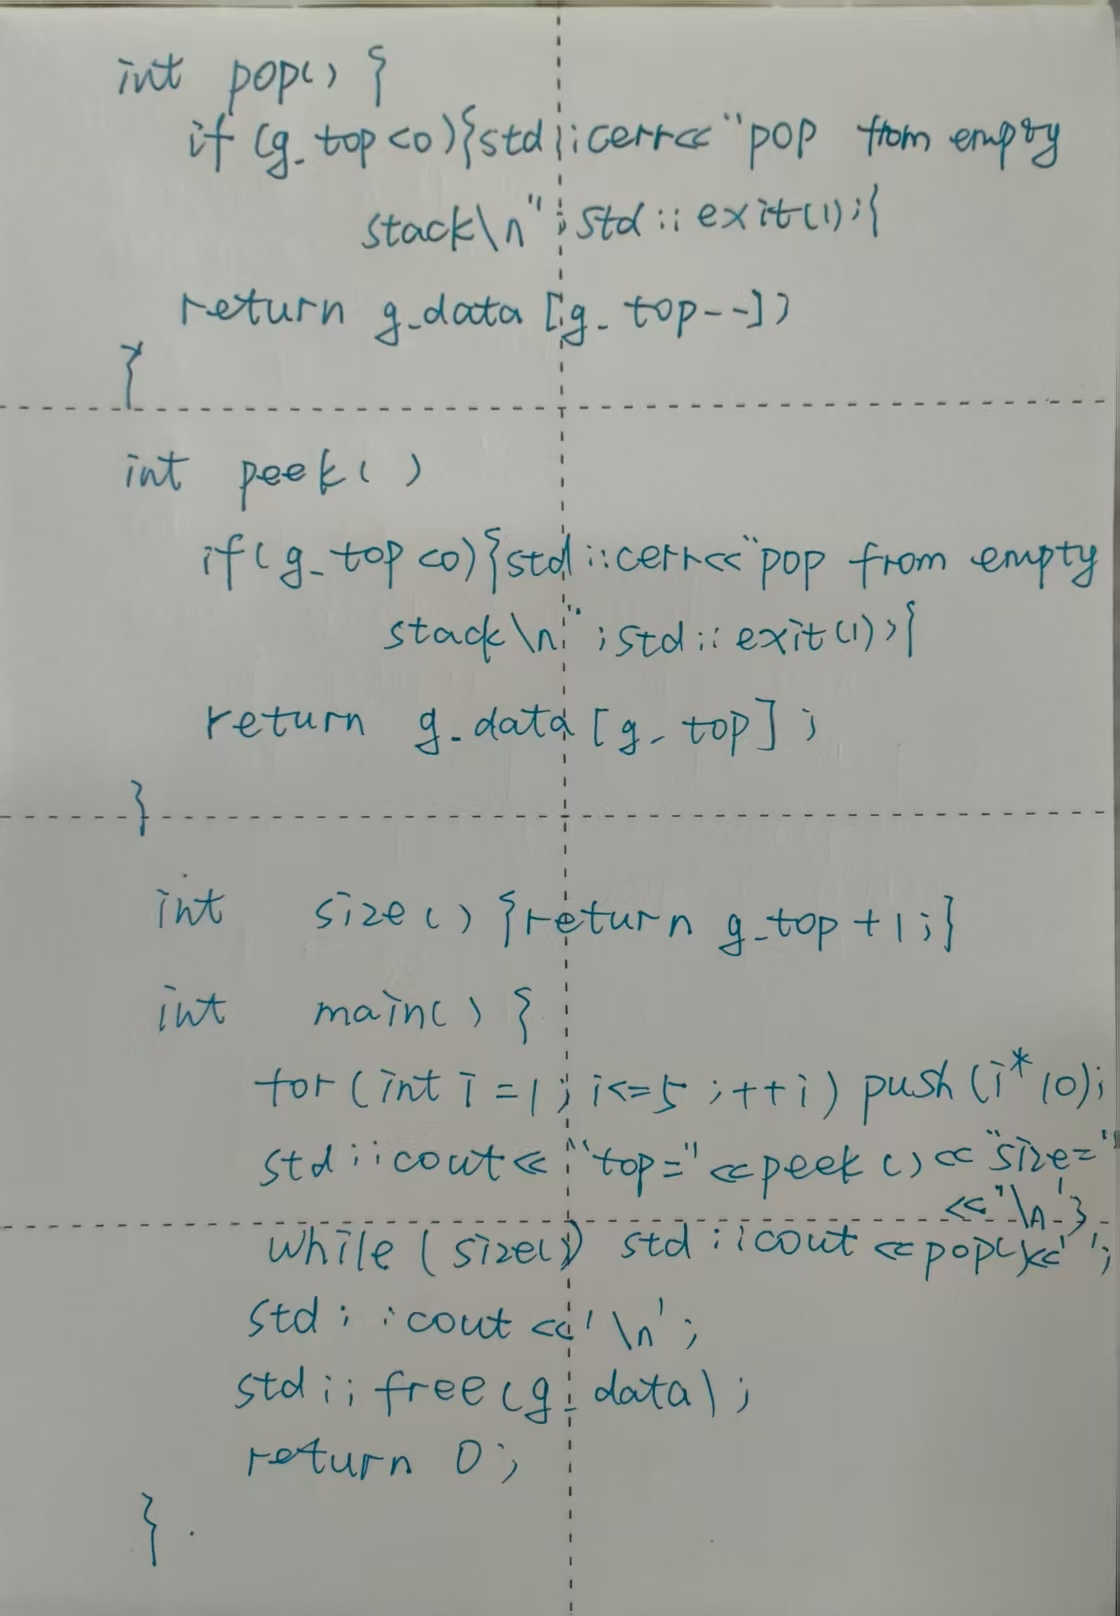 int pop() {
if (g_top<0){std::cerr<<"pop from empty
stack\n";std::exit(1);{
return g_data[g_top--])
}
int peek()
if(g_top<0){std::cerr<<"pop from empty
stack\n";std::exit(1);{
return g_data[g_top];
}
int size() {return g_top+1;}
int main() {
for(int i=1;i<=5;++i) push(i*10);
std::cout<<"top="<<peek()<<"size="
<<'\n';
while(size()) std::cout<<pop()<<' ';
std::cout<<'\n';
std::free(g_data);
return 0;
}